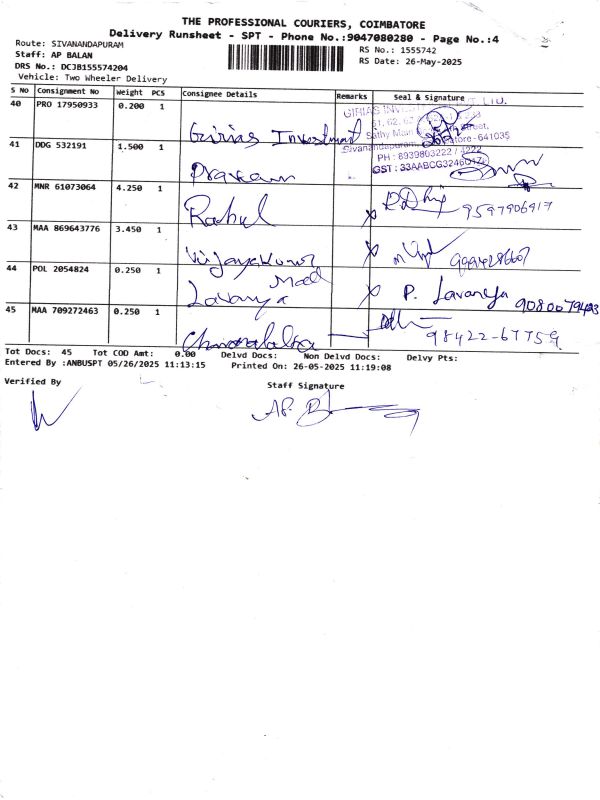 THE PROFESSIONAL COURIERS, COIMBATORE
Delivery Runsheet - SPT - Phone No.:9047080280 - Page No.:4
Route: SIVANANDAPURAM
Staff: AP BALAN
DRS No.: DCJB155574204
Vehicle: Two Wheeler Delivery
RS No.: 1555742
RS Date: 26-May-2025
S No Consignment No Weight PCS Consignee Details Remarks Seal & Signature
40 PRO 17950933 0.200 1 Girias Investment
41 DDG 532191 1.500 1 Praveen
42 MNR 61073064 4.250 1 Rahul 9597906917
43 MAA 869643776 3.450 1 Vijayakumar
44 POL 2054824 0.250 1 Lavanya P. Lavanya
45 MAA 709272463 0.250 1 98422-67759
PH : 8939803222 / 4222
Tot Docs: 45 Tot COD Amt: 0.00 Delvd Docs: Non Delvd Docs: Delvy Pts:
Entered By :ANBUSPT 05/26/2025 11:13:15 Printed On: 26-05-2025 11:19:08
Verified By
Staff Signature
AP. B